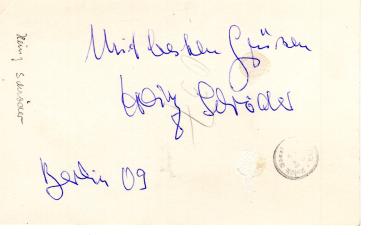 Mit besten Grüßen
Heinz Schröder
Berlin 09
Heinz Schröder